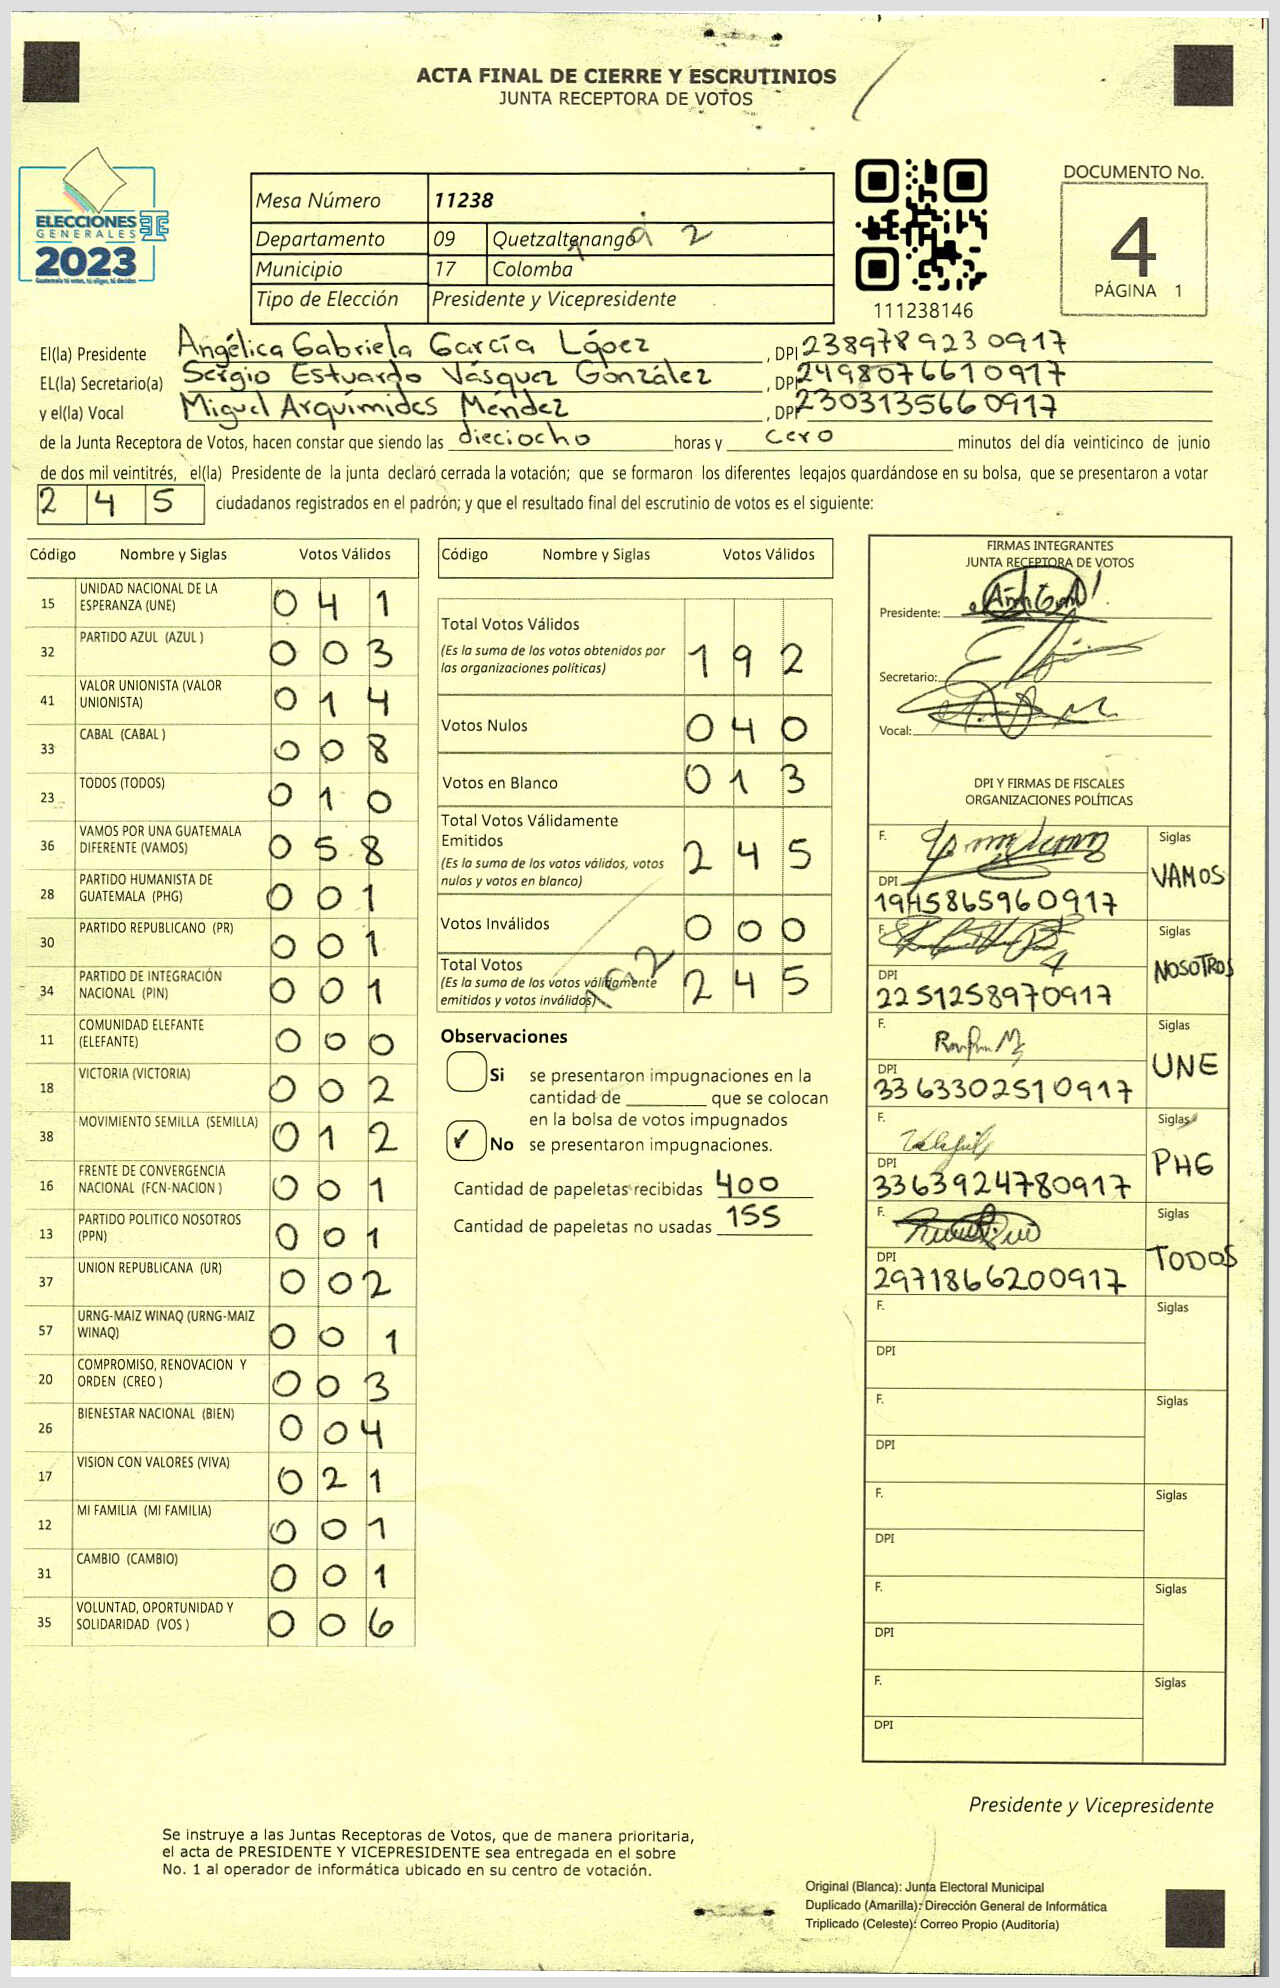 ACTA FINAL DE CIERRE Y ESCRUTINIOS
JUNTA RECEPTORA DE VOTOS
ELECCIONES
GENERALES
2023
Guatemala tú votas, tú eliges, tú decides
Mesa Número 11238
Departamento 09 Quetzaltenango
Municipio 17 Colomba
Tipo de Elección Presidente y Vicepresidente
111238146
DOCUMENTO No.
4
PÁGINA 1
El(la) Presidente Angélica Gabriela García López, DPI 2389789230917
EL(la) Secretario(a) Sergio Estuardo Vásquez González, DPI 2498076610917
y el(la) Vocal Miguel Arquímides Méndez, DPI 2303135660917
de la Junta Receptora de Votos, hacen constar que siendo las dieciocho horas y cero minutos del día veinticinco de junio
de dos mil veintitrés, el(la) Presidente de la junta declaró cerrada la votación; que se formaron los diferentes legajos quardándose en su bolsa, que se presentaron a votar
2 4 5 ciudadanos registrados en el padrón; y que el resultado final del escrutinio de votos es el siguiente:
Código Nombre y Siglas Votos Válidos
15 UNIDAD NACIONAL DE LA ESPERANZA (UNE) 0 4 1
32 PARTIDO AZUL (AZUL ) 0 0 3
41 VALOR UNIONISTA (VALOR UNIONISTA) 0 1 4
33 CABAL (CABAL ) 0 0 8
23 TODOS (TODOS) 0 1 0
36 VAMOS POR UNA GUATEMALA DIFERENTE (VAMOS) 0 5 8
28 PARTIDO HUMANISTA DE GUATEMALA (PHG) 0 0 1
30 PARTIDO REPUBLICANO (PR) 0 0 1
34 PARTIDO DE INTEGRACIÓN NACIONAL (PIN) 0 0 1
11 COMUNIDAD ELEFANTE (ELEFANTE) 0 0 0
18 VICTORIA (VICTORIA) 0 0 2
38 MOVIMIENTO SEMILLA (SEMILLA) 0 1 2
16 FRENTE DE CONVERGENCIA NACIONAL (FCN-NACION ) 0 0 1
13 PARTIDO POLITICO NOSOTROS (PPN) 0 0 1
37 UNION REPUBLICANA (UR) 0 0 2
57 URNG-MAIZ WINAQ (URNG-MAIZ WINAQ) 0 0 1
20 COMPROMISO, RENOVACION Y ORDEN (CREO ) 0 0 3
26 BIENESTAR NACIONAL (BIEN) 0 0 4
17 VISION CON VALORES (VIVA) 0 2 1
12 MI FAMILIA (MI FAMILIA) 0 0 1
31 CAMBIO (CAMBIO) 0 0 1
35 VOLUNTAD, OPORTUNIDAD Y SOLIDARIDAD (VOS ) 0 0 6
Código Nombre y Siglas Votos Válidos
Total Votos Válidos
(Es la suma de los votos obtenidos por
las organizaciones políticas) 1 9 2
Votos Nulos 0 4 0
Votos en Blanco 0 1 3
Total Votos Válidamente
Emitidos
(Es la suma de los votos válidos, votos
nulos y votos en blanco) 2 4 5
Votos Inválidos 0 0 0
Total Votos
(Es la suma de los votos válidamente
emitidos y votos inválidos) 2 4 5
Observaciones
Si se presentaron impugnaciones en la
cantidad de ________ que se colocan
en la bolsa de votos impugnados
✓ No se presentaron impugnaciones.
Cantidad de papeletas recibidas 400
Cantidad de papeletas no usadas 155
FIRMAS INTEGRANTES
JUNTA RECEPTORA DE VOTOS
Presidente:
Secretario:
Vocal:
DPI Y FIRMAS DE FISCALES
ORGANIZACIONES POLÍTICAS
F. Siglas
VAMOS
DPI 1945865960917
F. Siglas
NOSOTROS
DPI
2251258970917
F. Siglas
UNE
DPI
3363302510917
F. Siglas
PHG
DPI
3363924780917
F. Siglas
TODOS
DPI
2971866200917
F. Siglas
DPI
F. Siglas
DPI
F. Siglas
DPI
F. Siglas
DPI
F. Siglas
DPI
Presidente y Vicepresidente
Se instruye a las Juntas Receptoras de Votos, que de manera prioritaria,
el acta de PRESIDENTE Y VICEPRESIDENTE sea entregada en el sobre
No. 1 al operador de informática ubicado en su centro de votación.
Original (Blanca): Junta Electoral Municipal
Duplicado (Amarilla): Dirección General de Informática
Triplicado (Celeste): Correo Propio (Auditoría)